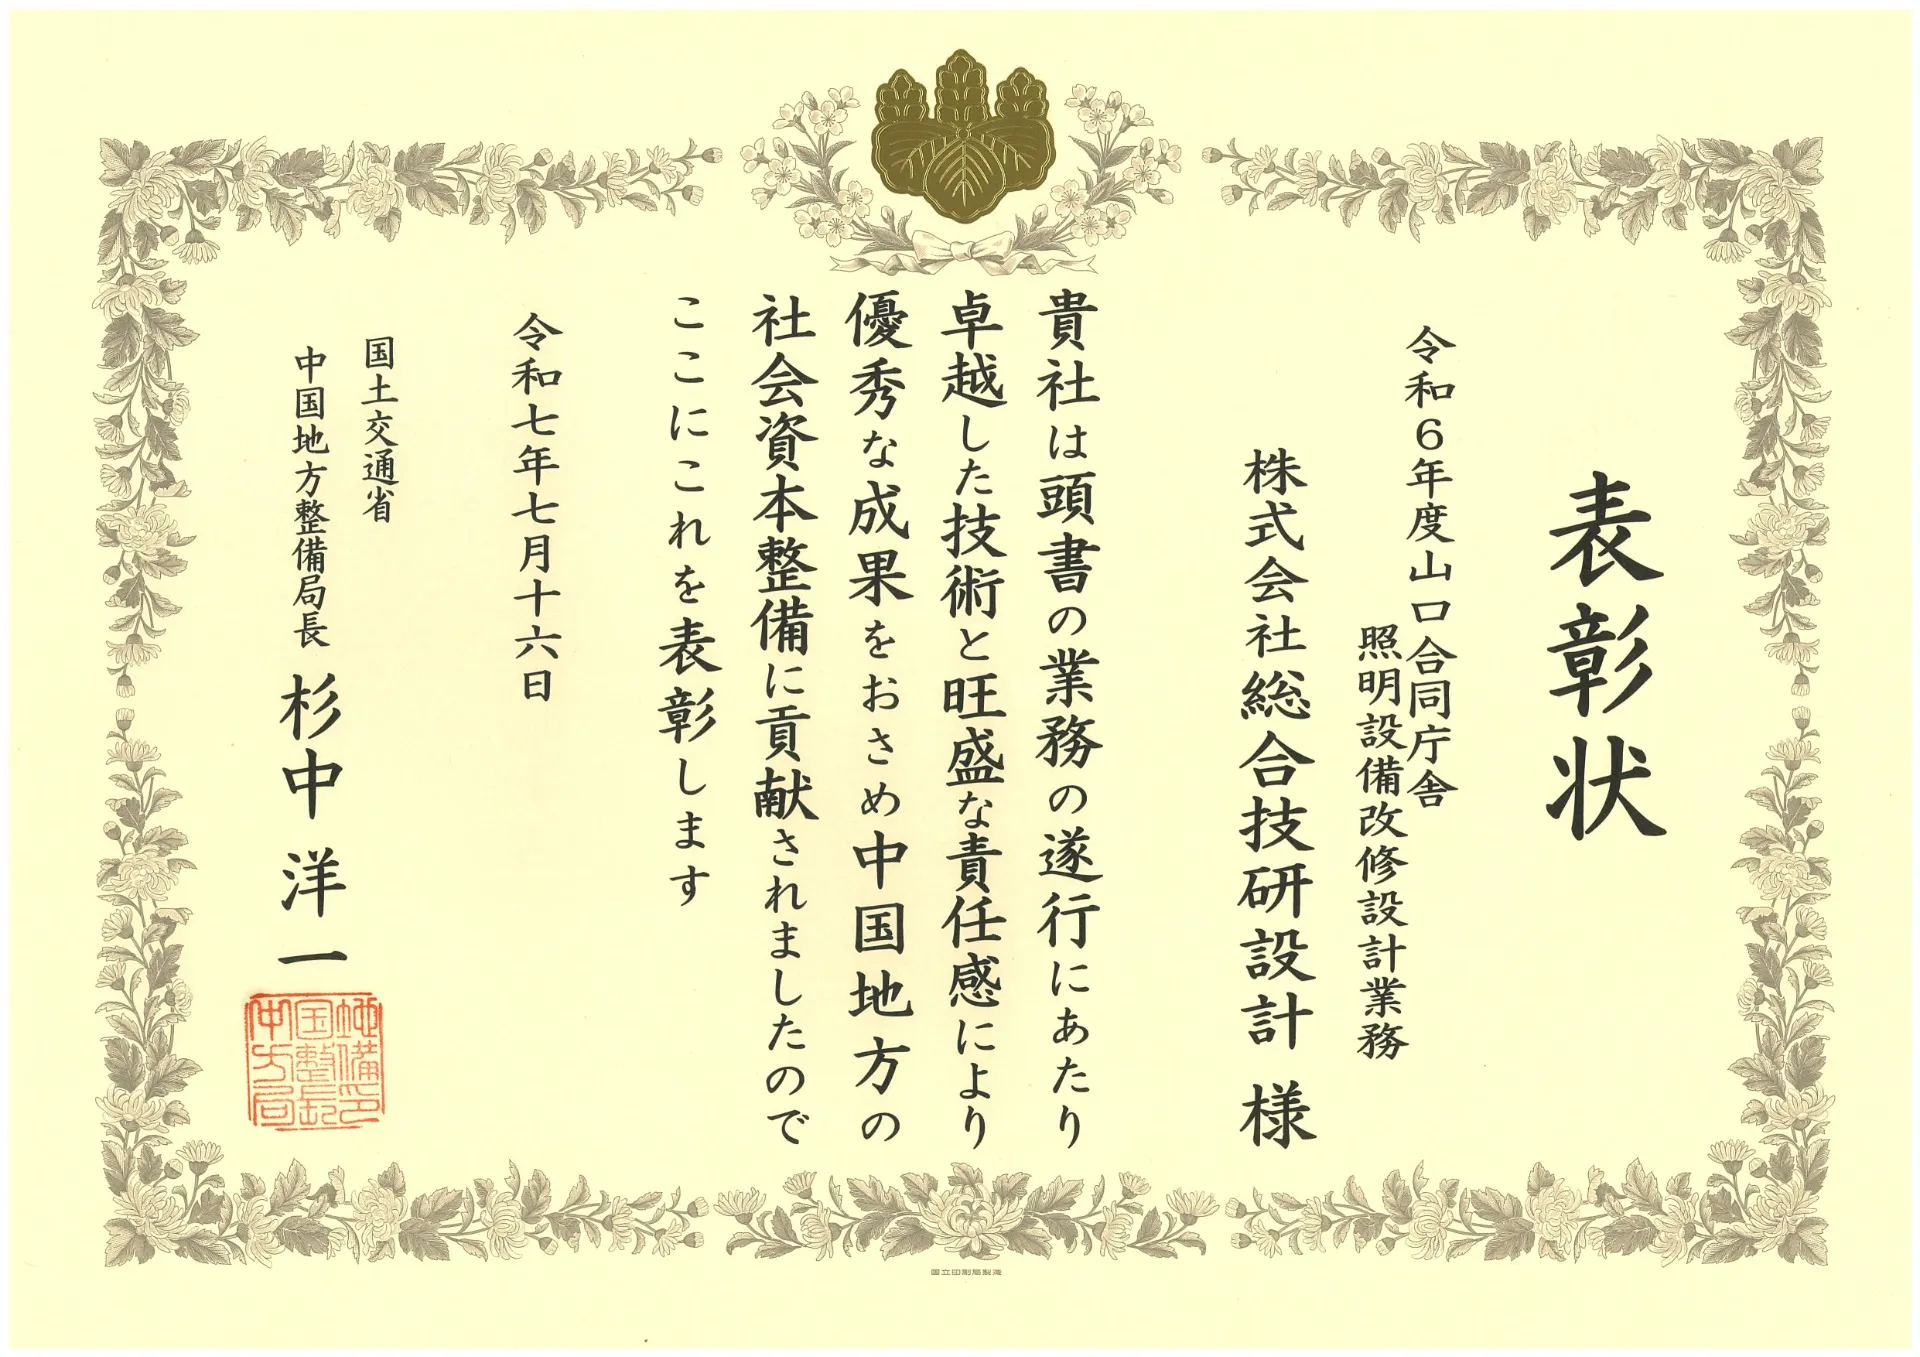 表彰状
令和6年度山口合同庁舎
照明設備改修設計業務
株式会社総合技研設計 様
貴社は頭書の業務の遂行にあたり
卓越した技術と旺盛な責任感により
優秀な成果をおさめ中国地方の
社会資本整備に貢献されましたので
ここにこれを表彰します
令和七年七月十六日
国土交通省
中国地方整備局長 杉中洋一
中国地方整備局長印
国立印刷局製造